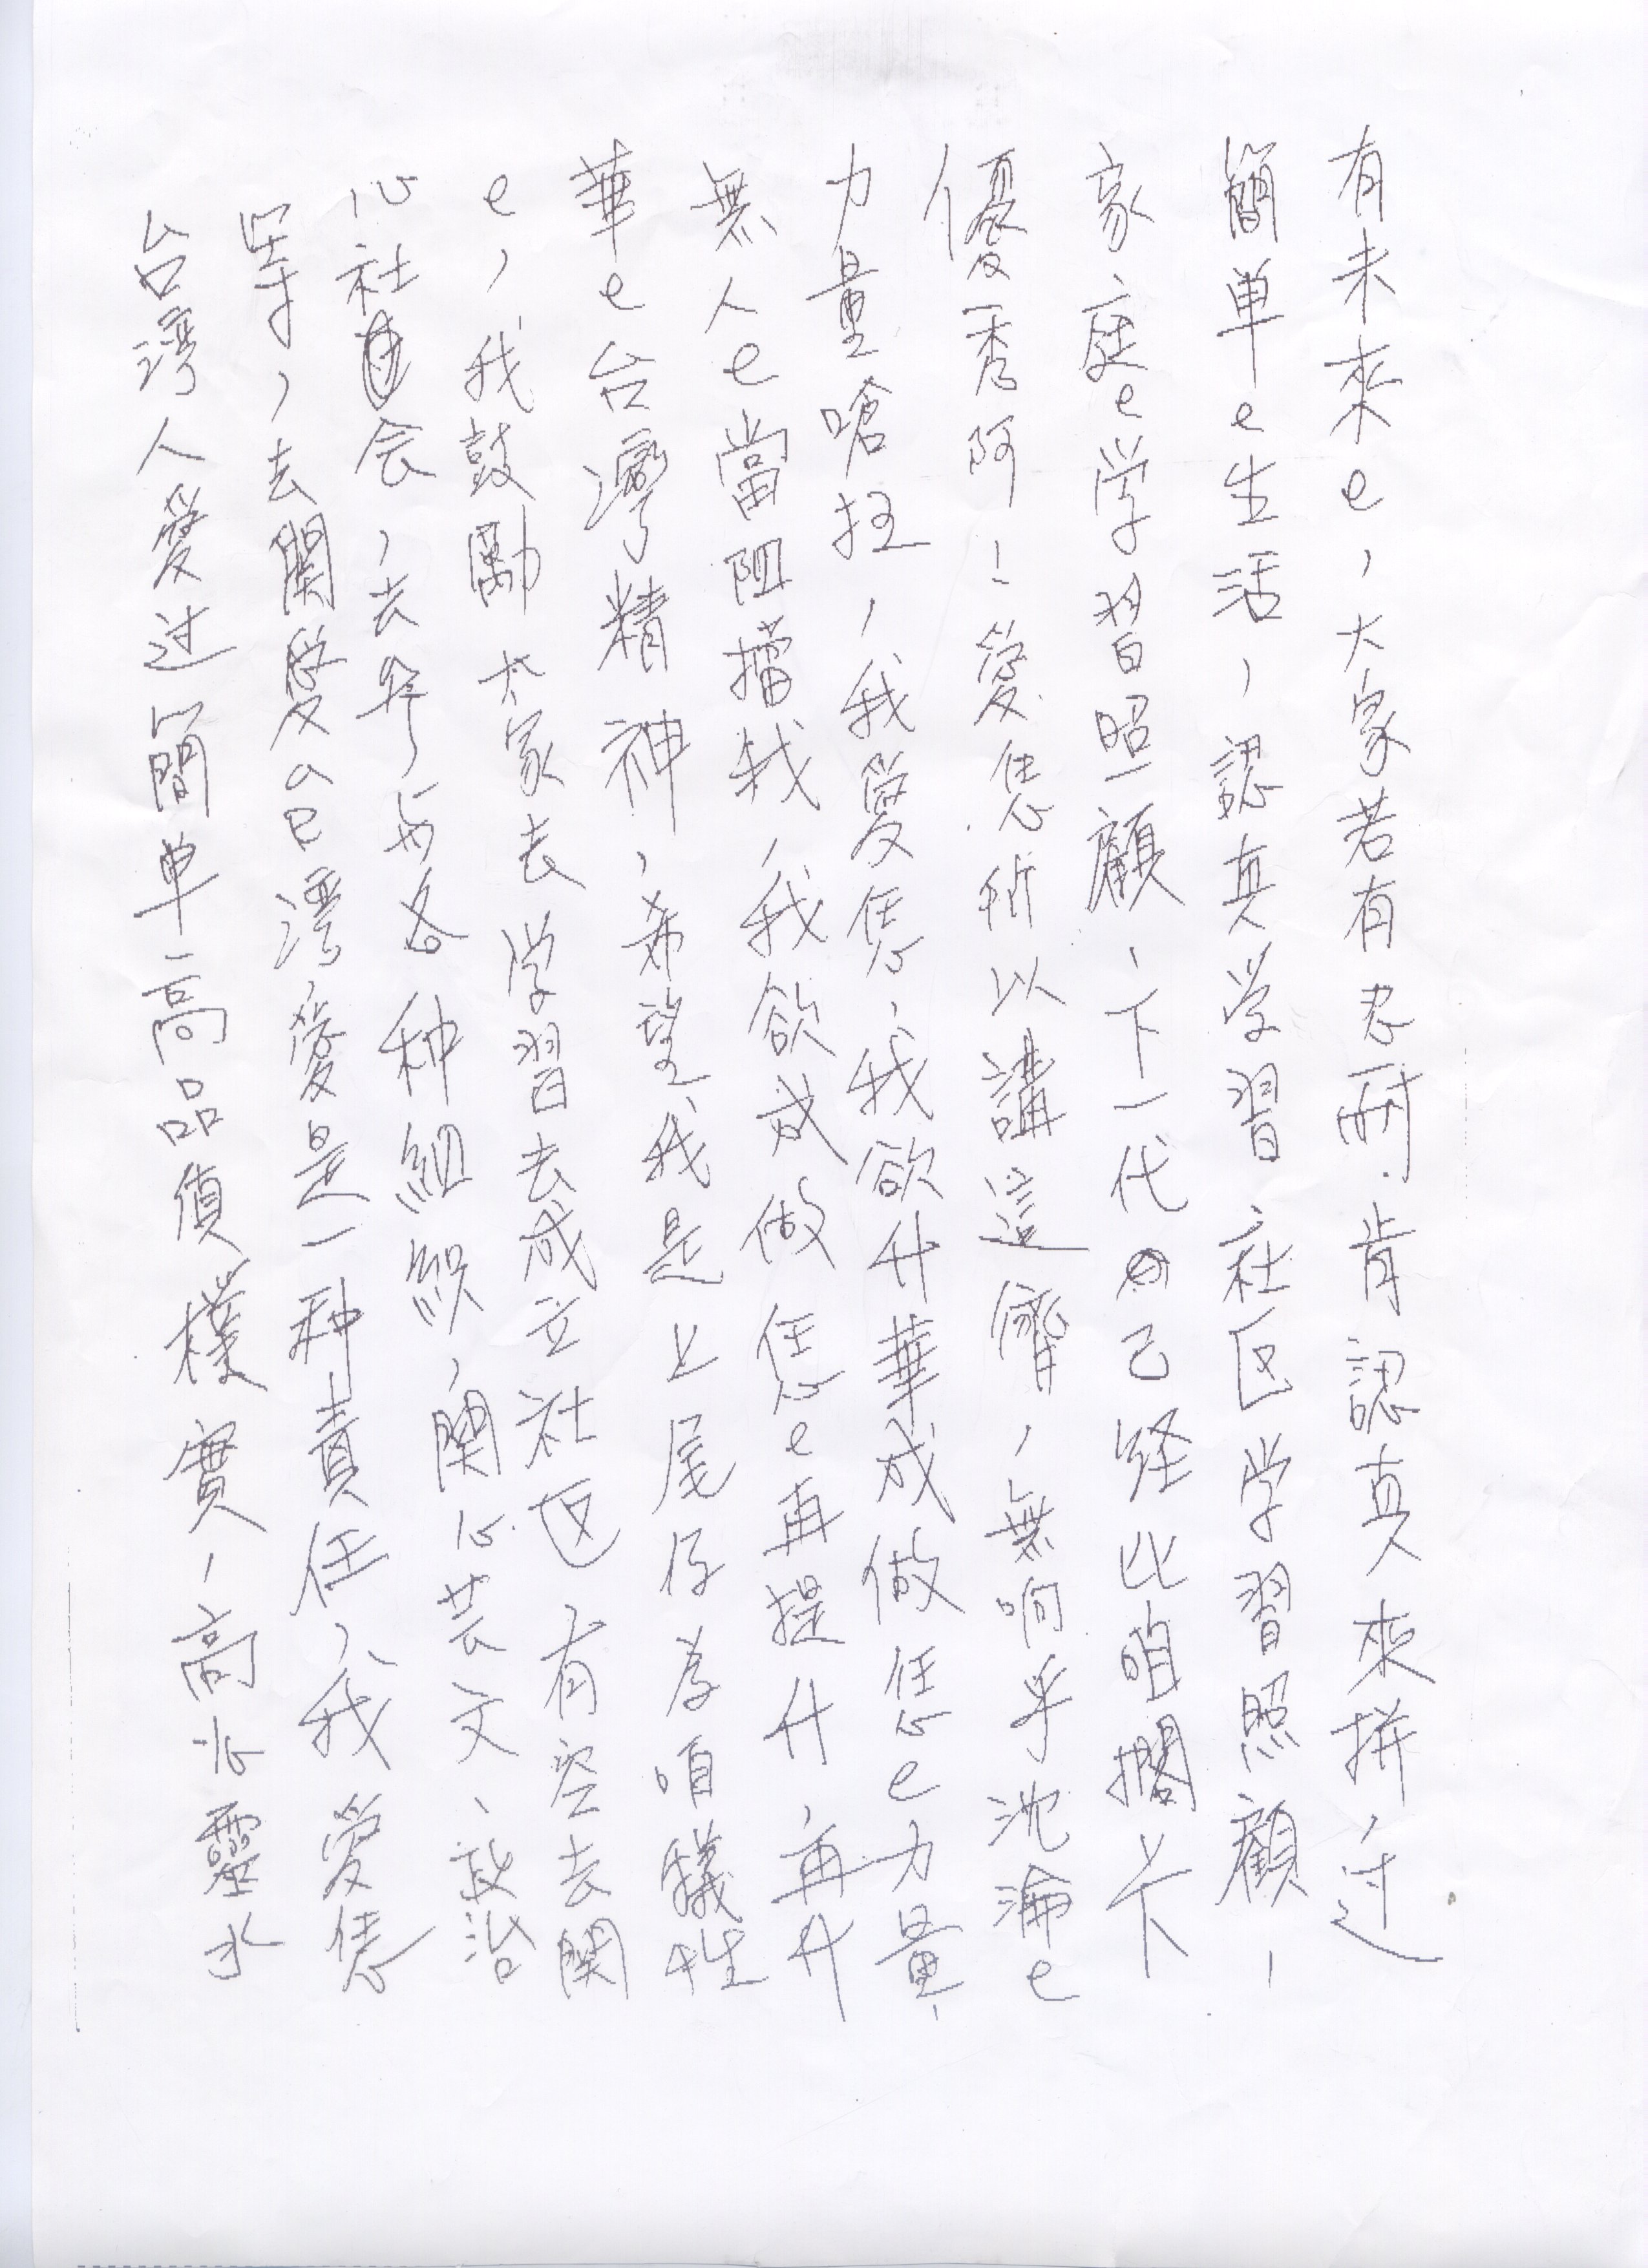 有未來e，大家若有忍耐、肯認真來拼，过
簡单e生活，認真学習、社区学習照顧、
家庭e学習照顧、下一代已経比咱擱卡
優秀阿！愛恁所以講這儕，無响乎沈淪e
力量嗆抂，我愛恁、我欲升華成做恁e力量、
無人e當阻擋我，我欲成做恁e再提升，再升
華e台灣精神，希望我是上尾仔為咱犧牲
e，我鼓勵大家去学習去成立社区，有空去関
心社会，去参与各种組織，関心芸文、政治
等，去関愛台湾，愛是一种責任，我愛恁
台湾人愛过簡单、高品質樸實、高心靈水